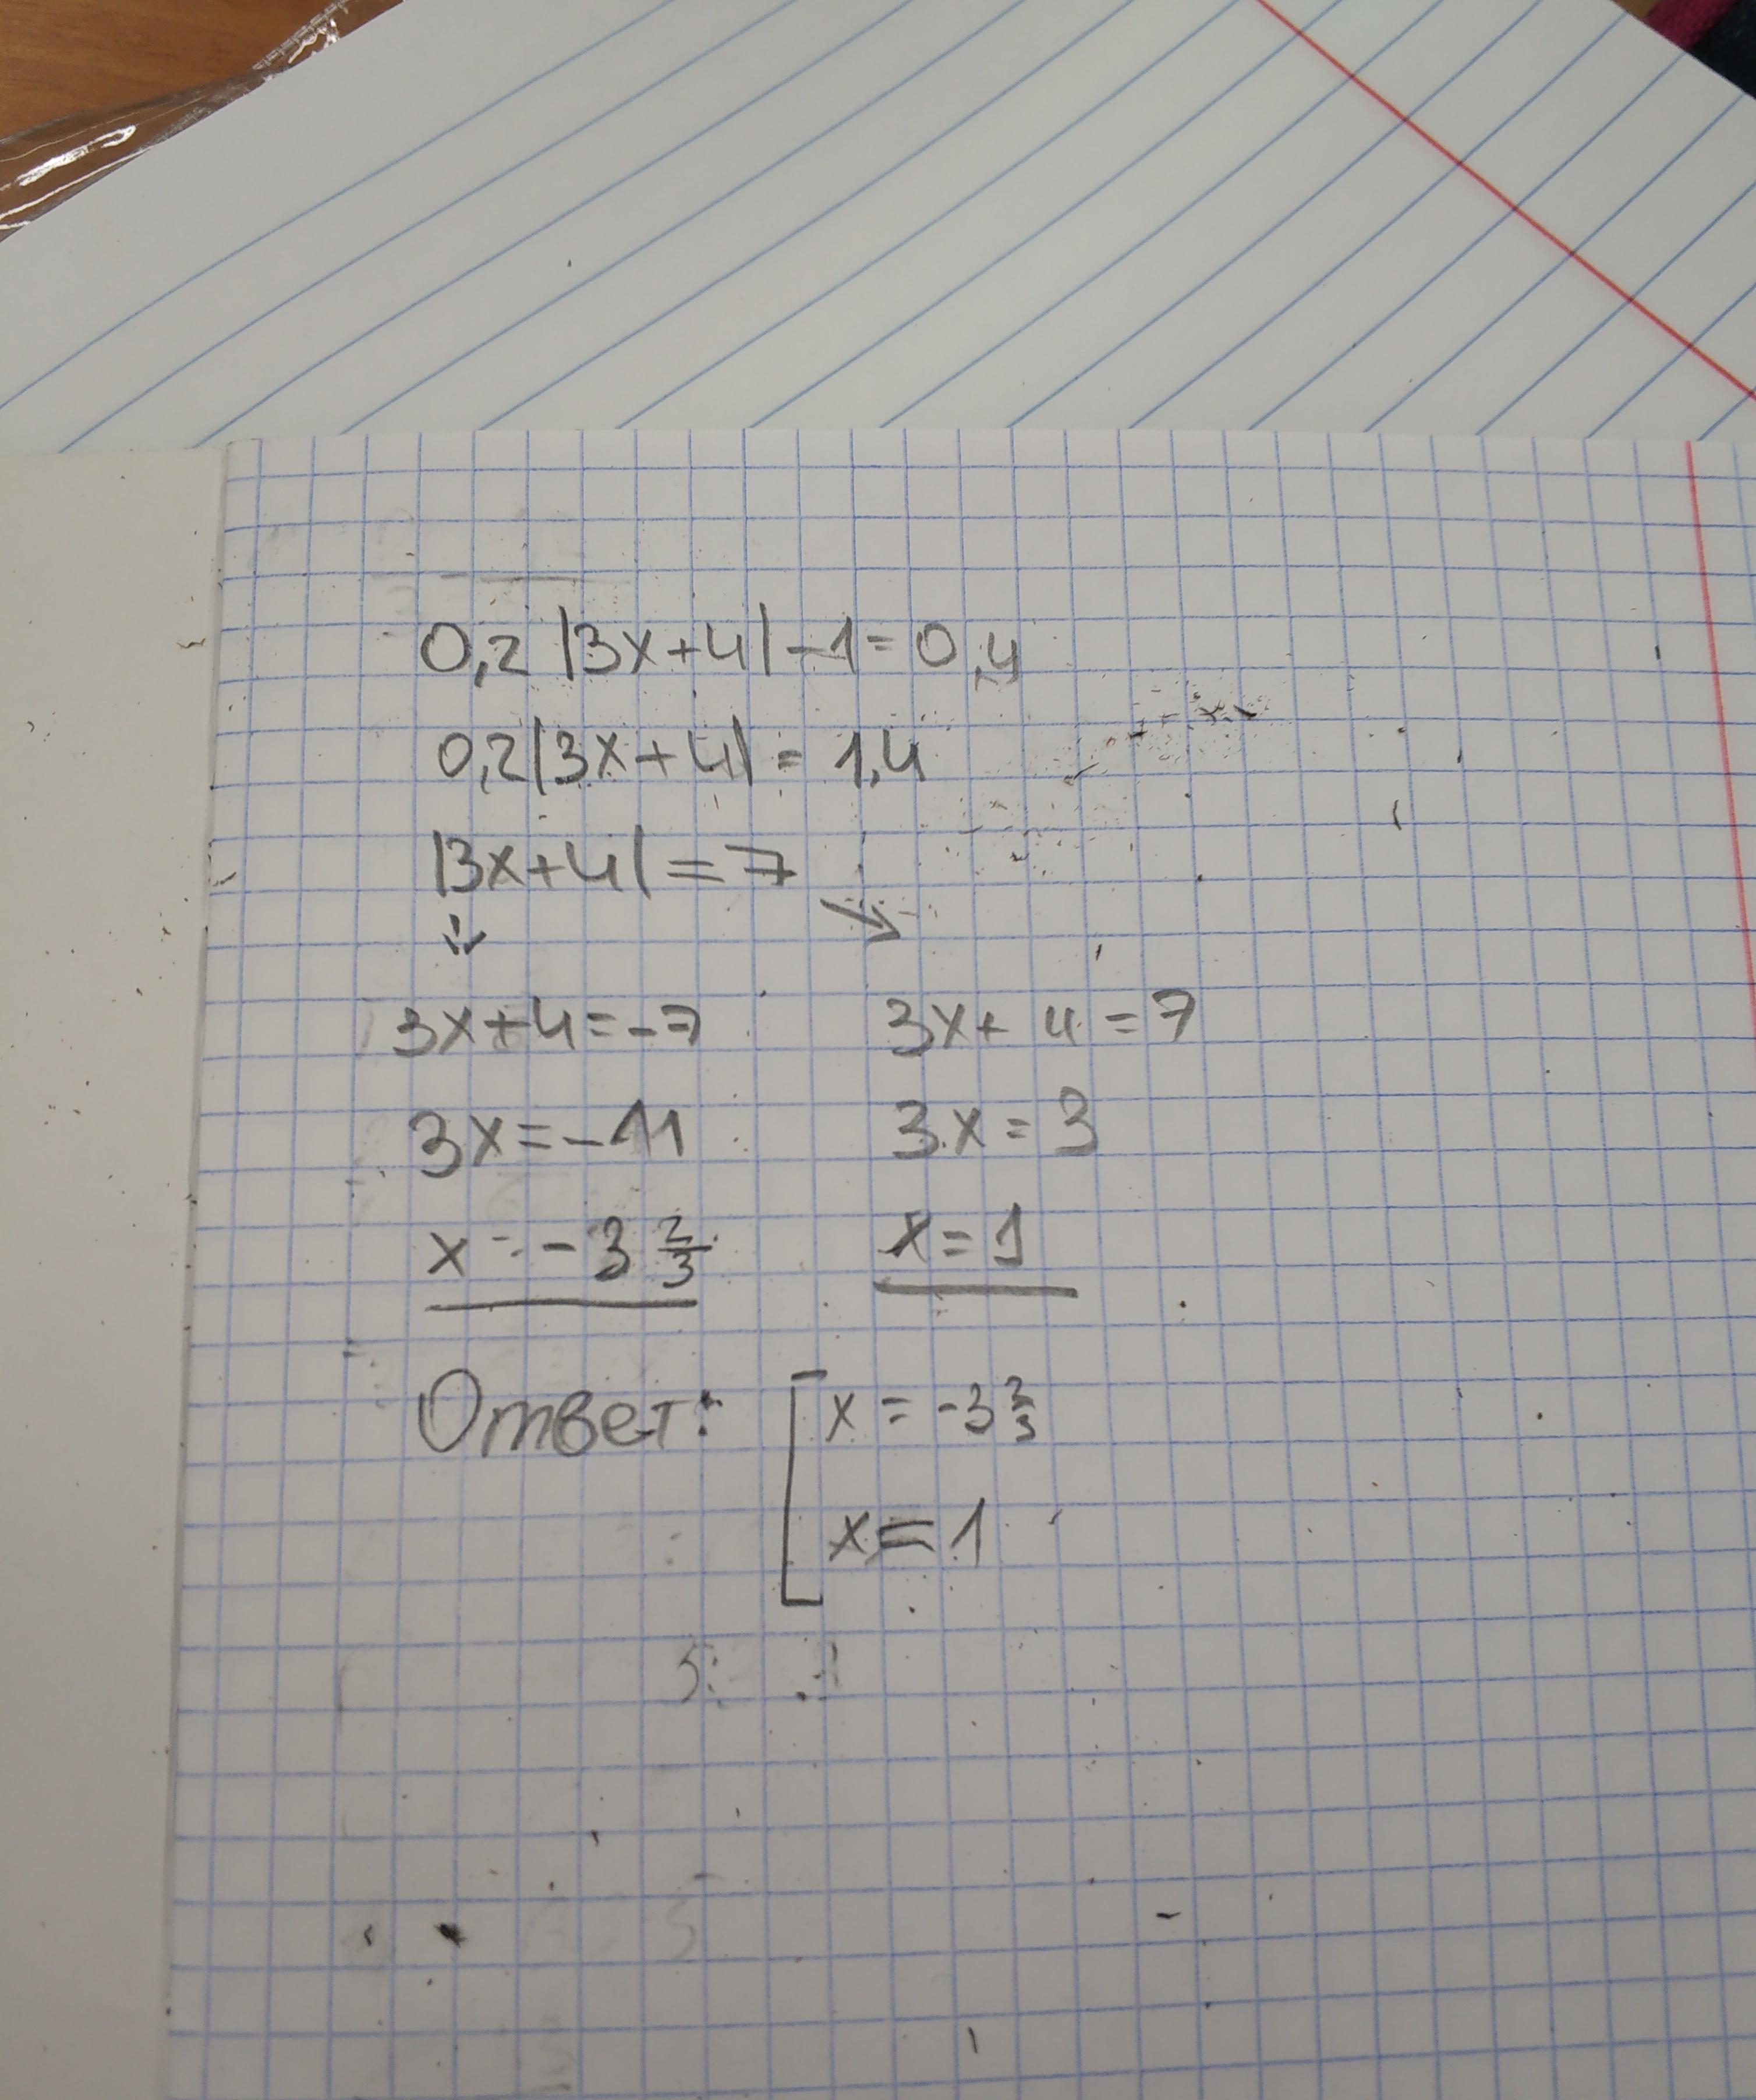 0,2 |3x+4| -1 = 0,4
0,2|3x+4| = 1,4
|3x+4| = 7
3x+4=-7 3x+4=7
3x=-11 3x=3
x=-3 2/3 x=1
Ответ: [ x = -3 2/3
x = 1